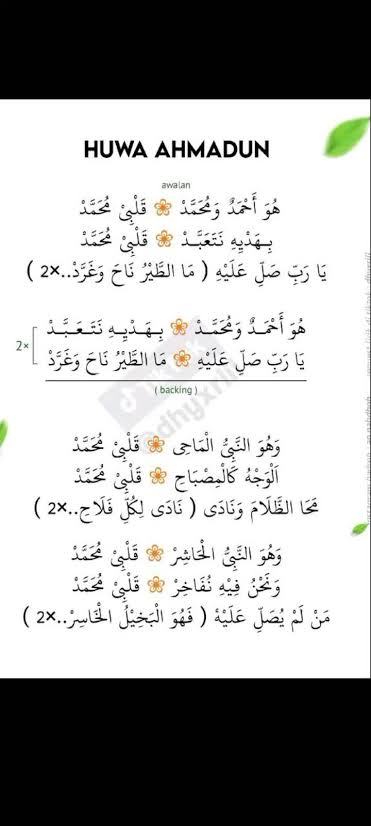 HUWA AHMADUN
awalan
هُوَ أَحْمَدٌ وَمُحَمَّدْ قَلْبِيْ مُحَمَّدْ
بِـهَدْيِهِ نَتَعَبَّـدْ قَلْبِيْ مُحَمَّدْ
يَا رَبِّ صَلِّ عَلَيْهِ ( مَا الطَّيْرُ نَاحَ وَغَرَّدْ..×2 )
هُوَ أَحْمَـدٌ وَمُحَمَّـدْ بِـهَدْيِـهِ نَتَعَـبَّـدْ
2× يَا رَبِّ صَلِّ عَلَيْهِ مَا الطَّيْرُ نَاحَ وَغَرَّدْ
( backing )
وَهُوَ النَّبِيُّ الْمَاحِى قَلْبِيْ مُحَمَّدْ
اَلْوَجْهُ كَالْمِصْبَاحِ قَلْبِيْ مُحَمَّدْ
مَحَا الظَّلَامَ وَنَادَى ( نَادَى لِكُلِّ فَلَاحِ..×2 )
وَهُوَ النَّبِيُّ الْحَاشِرْ قَلْبِيْ مُحَمَّدْ
وَنَحْنُ فِيْهِ نُفَاخِرْ قَلْبِيْ مُحَمَّدْ
مَنْ لَمْ يُصَلِّ عَلَيْهْ ( فَهُوَ الْبَخِيْلُ الْخَاسِرْ..×2 )
@dhyxrill